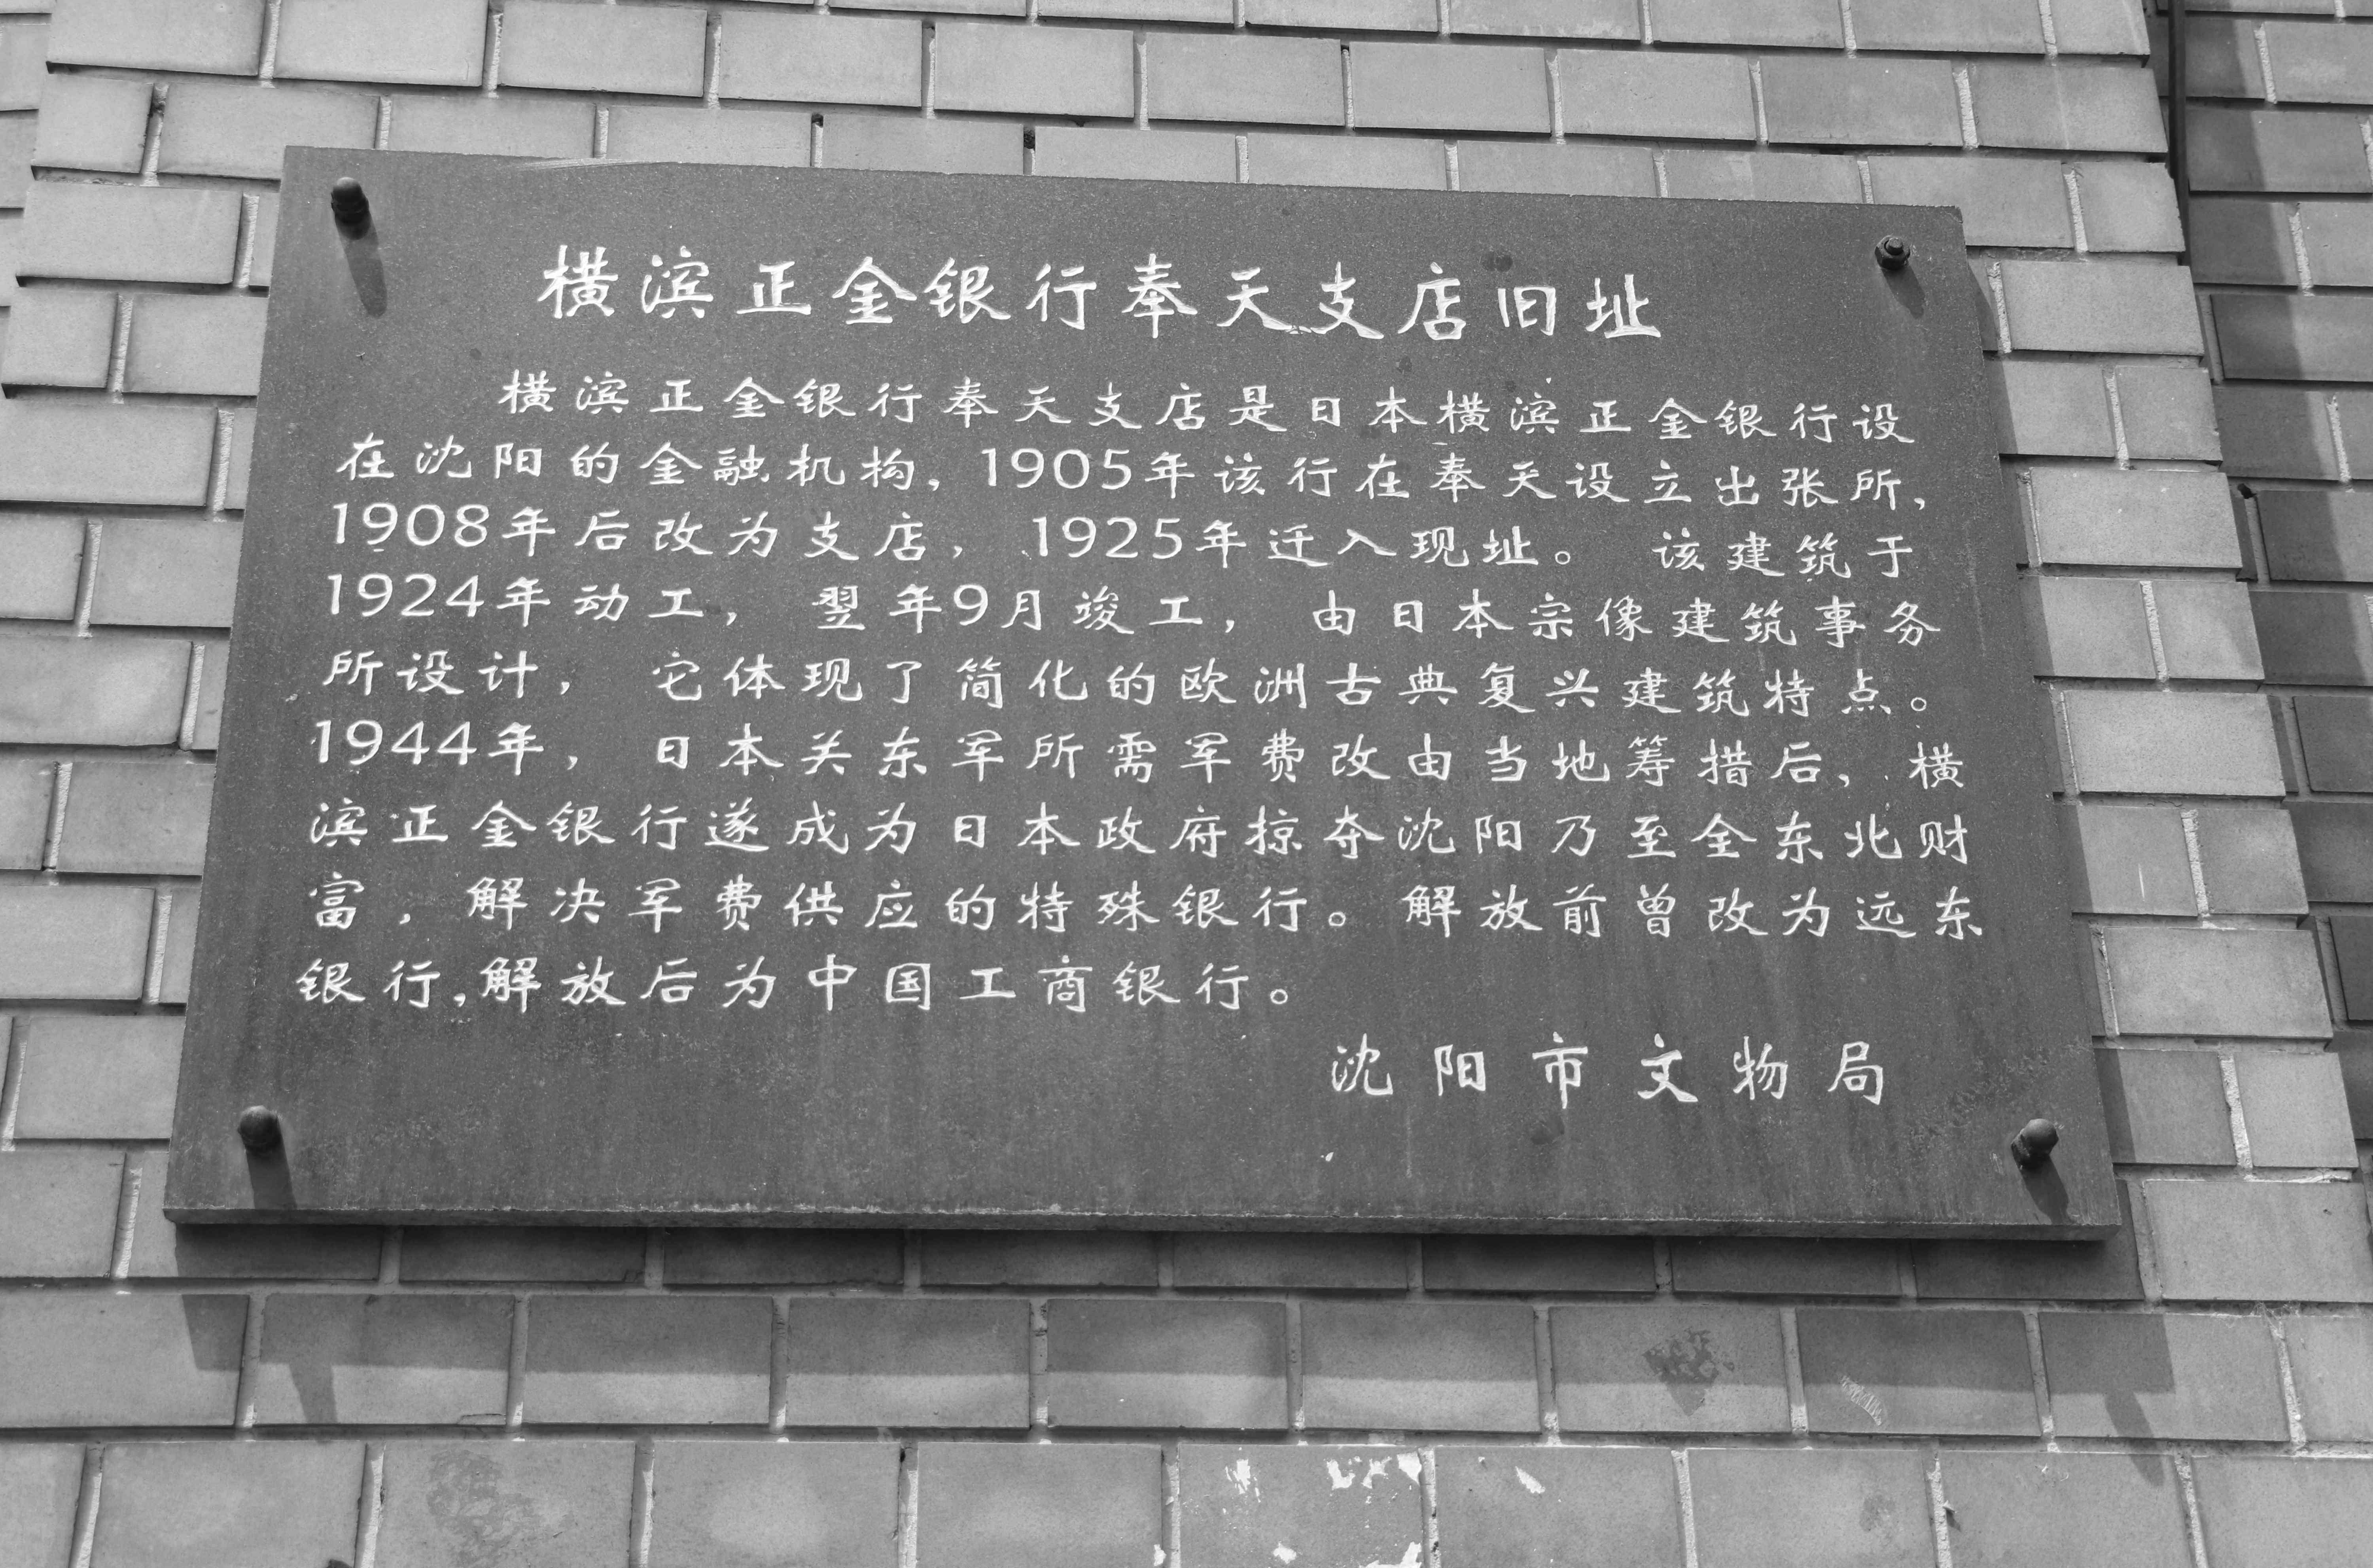 横滨正金银行奉天支店旧址
横滨正金银行奉天支店是日本横滨正金银行设
在沈阳的金融机构,1905年该行在奉天设立出张所,
1908年后改为支店,1925年迁入现址。该建筑于
1924年动工,翌年9月竣工,由日本宗像建筑事务
所设计,它体现了简化的欧洲古典复兴建筑特点。
1944年,日本关东军所需军费改由当地筹措后,横
滨正金银行遂成为日本政府掠夺沈阳乃至全东北财
富,解决军费供应的特殊银行。解放前曾改为远东
银行,解放后为中国工商银行。
沈阳市文物局